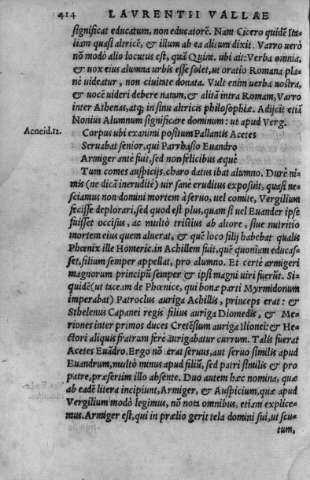 414 LAVRENTII VALLAE
significat educatum, non educatorē. Nam Cicero quidē Ita
liam quasi alricē, & illum ab ea alitum dixit. Varro uerò
nō modò alio locutus est, quā Quint. ubi ait: Verba omnia,
& uox eius alumna urbis esse solet, ut oratio Romana pla
nè uideatur, non ciuitate donata. Vult enim uerba nostra,
& uocē uideri debere natum, & alitū intra Romam, Varro
inter Athenas, atq; in sinu altricis philosophiæ. Adijcit etiā
Nonius Alumnum significare dominum: ut apud Verg.
Aeneid. 11. Corpus ubi exanimi positum Pallantis Acetes
Seruabat senior, qui Parrhasio Euandro
Armiger antè fuit, sed non felicibus æquè
Tum comes auspicijs, charo datus ibat alumno. Durè ni-
mis (ne dicā ineruditè) uir sanè eruditus exposuit, quasi ne-
sciamus non domini mortem à seruo, uel comite, Vergilium
fecisse deplorari, sed quod est plus, quam si uel Euander ipse
fuisset occisus, ac multò tristius ab altore, siue nutritio
mortem eius quem aluerat, & quē loco filij habebat qualis
Phœnix ille Homeric. in Achillem fuit, quē quoniam educas-
set, filium semper appellat, pro alumno. Et certè armigeri
magnorum principū semper & ipsi magni uiri fuerūt. Si-
quidē (ut taceam de Phœnice, qui bonæ parti Myrmidonum
imperabat) Patroclus auriga Achillis, princeps erat: &
Sthelenus Capanei regis filius auriga Diomedis, & Me
riones inter primos duces Cretēsium auriga Ilionei: & He
ctori aliquis fratrum ferè aurigabatur currum. Talis fuerat
Acetes Euādro. Ergo nō erat seruus, aut seruo similis apud
Euandrum, multò minus apud filiū, sed patri similis & pro
patre, præsertim illo absente. Duo autem hæc nomina, quæ
ab eadē litera incipiunt, Armiger, & Auspicium, quæ apud
Vergilium modò legimus, nō nota omnibus, etiam explice-
mus. Armiger est, qui in prælio gerit tela domini sui, ut scu-
tum,